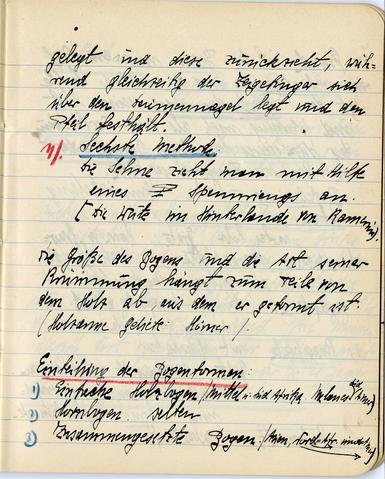 gelegt und diese zurückzieht, wäh-
rend gleichzeitig der Zeigefinger sich
über den Daumennagel legt und den
Pfeil festhält.
Sechste Methode.
Die Sehne zieht man mit Hilfe
eines Spannrings an.
(Die Wute im Hinterlande von Kamerun).
Die Größe des Bogens und die Art seiner
Krümmung hängt zum Teile von
dem Holz ab aus dem er geformt ist.
Einteilung der Bogenformen:
1) Einfache Holzbogen / Mittel u. Süd Afrika,
2) Hornbogen. selten
3) Zusammengesetzte Bogen